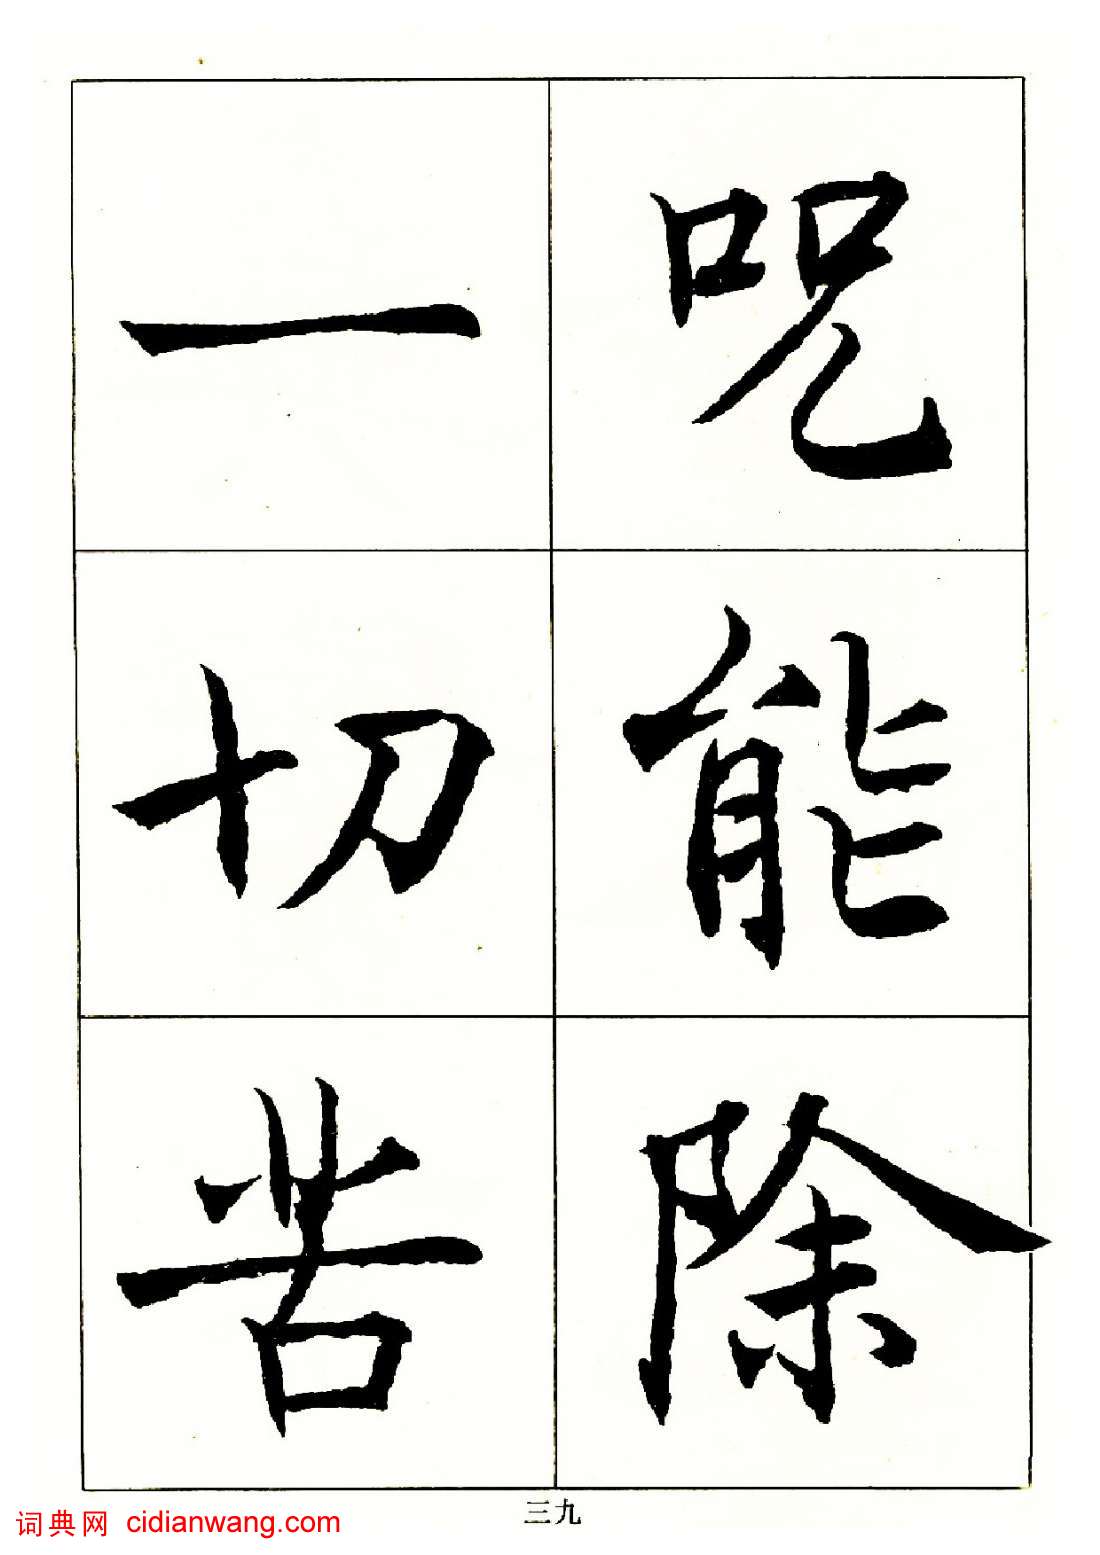 咒能除
一切苦
三九
词典网 cidianwang.com